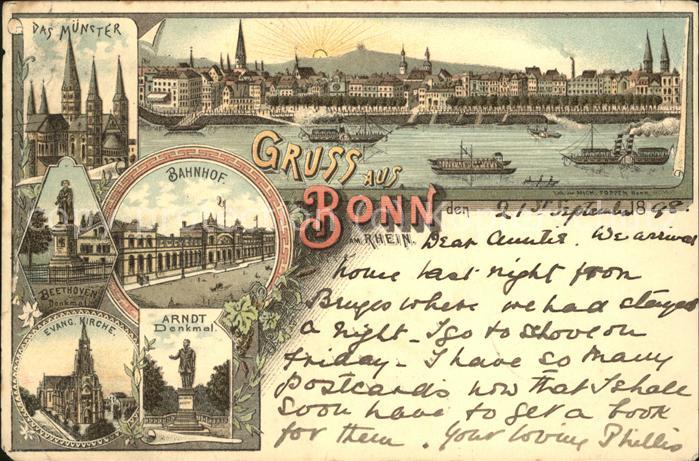 DAS MÜNSTER
GRUSS AUS
BONN
AM RHEIN.
Lith. von MICH. TOPPEN Bonn
BAHNHOF.
BEETHOVEN
Denkmal.
EVANG. KIRCHE.
ARNDT
Denkmal.
den 21st September 1898.
Dear Auntie. We arrived
home last night from
Bruges where we had stayed
a night - I go to school on
Friday - I have so many
postcards now that I shall
soon have to get a book
for them. Your loving Phillis